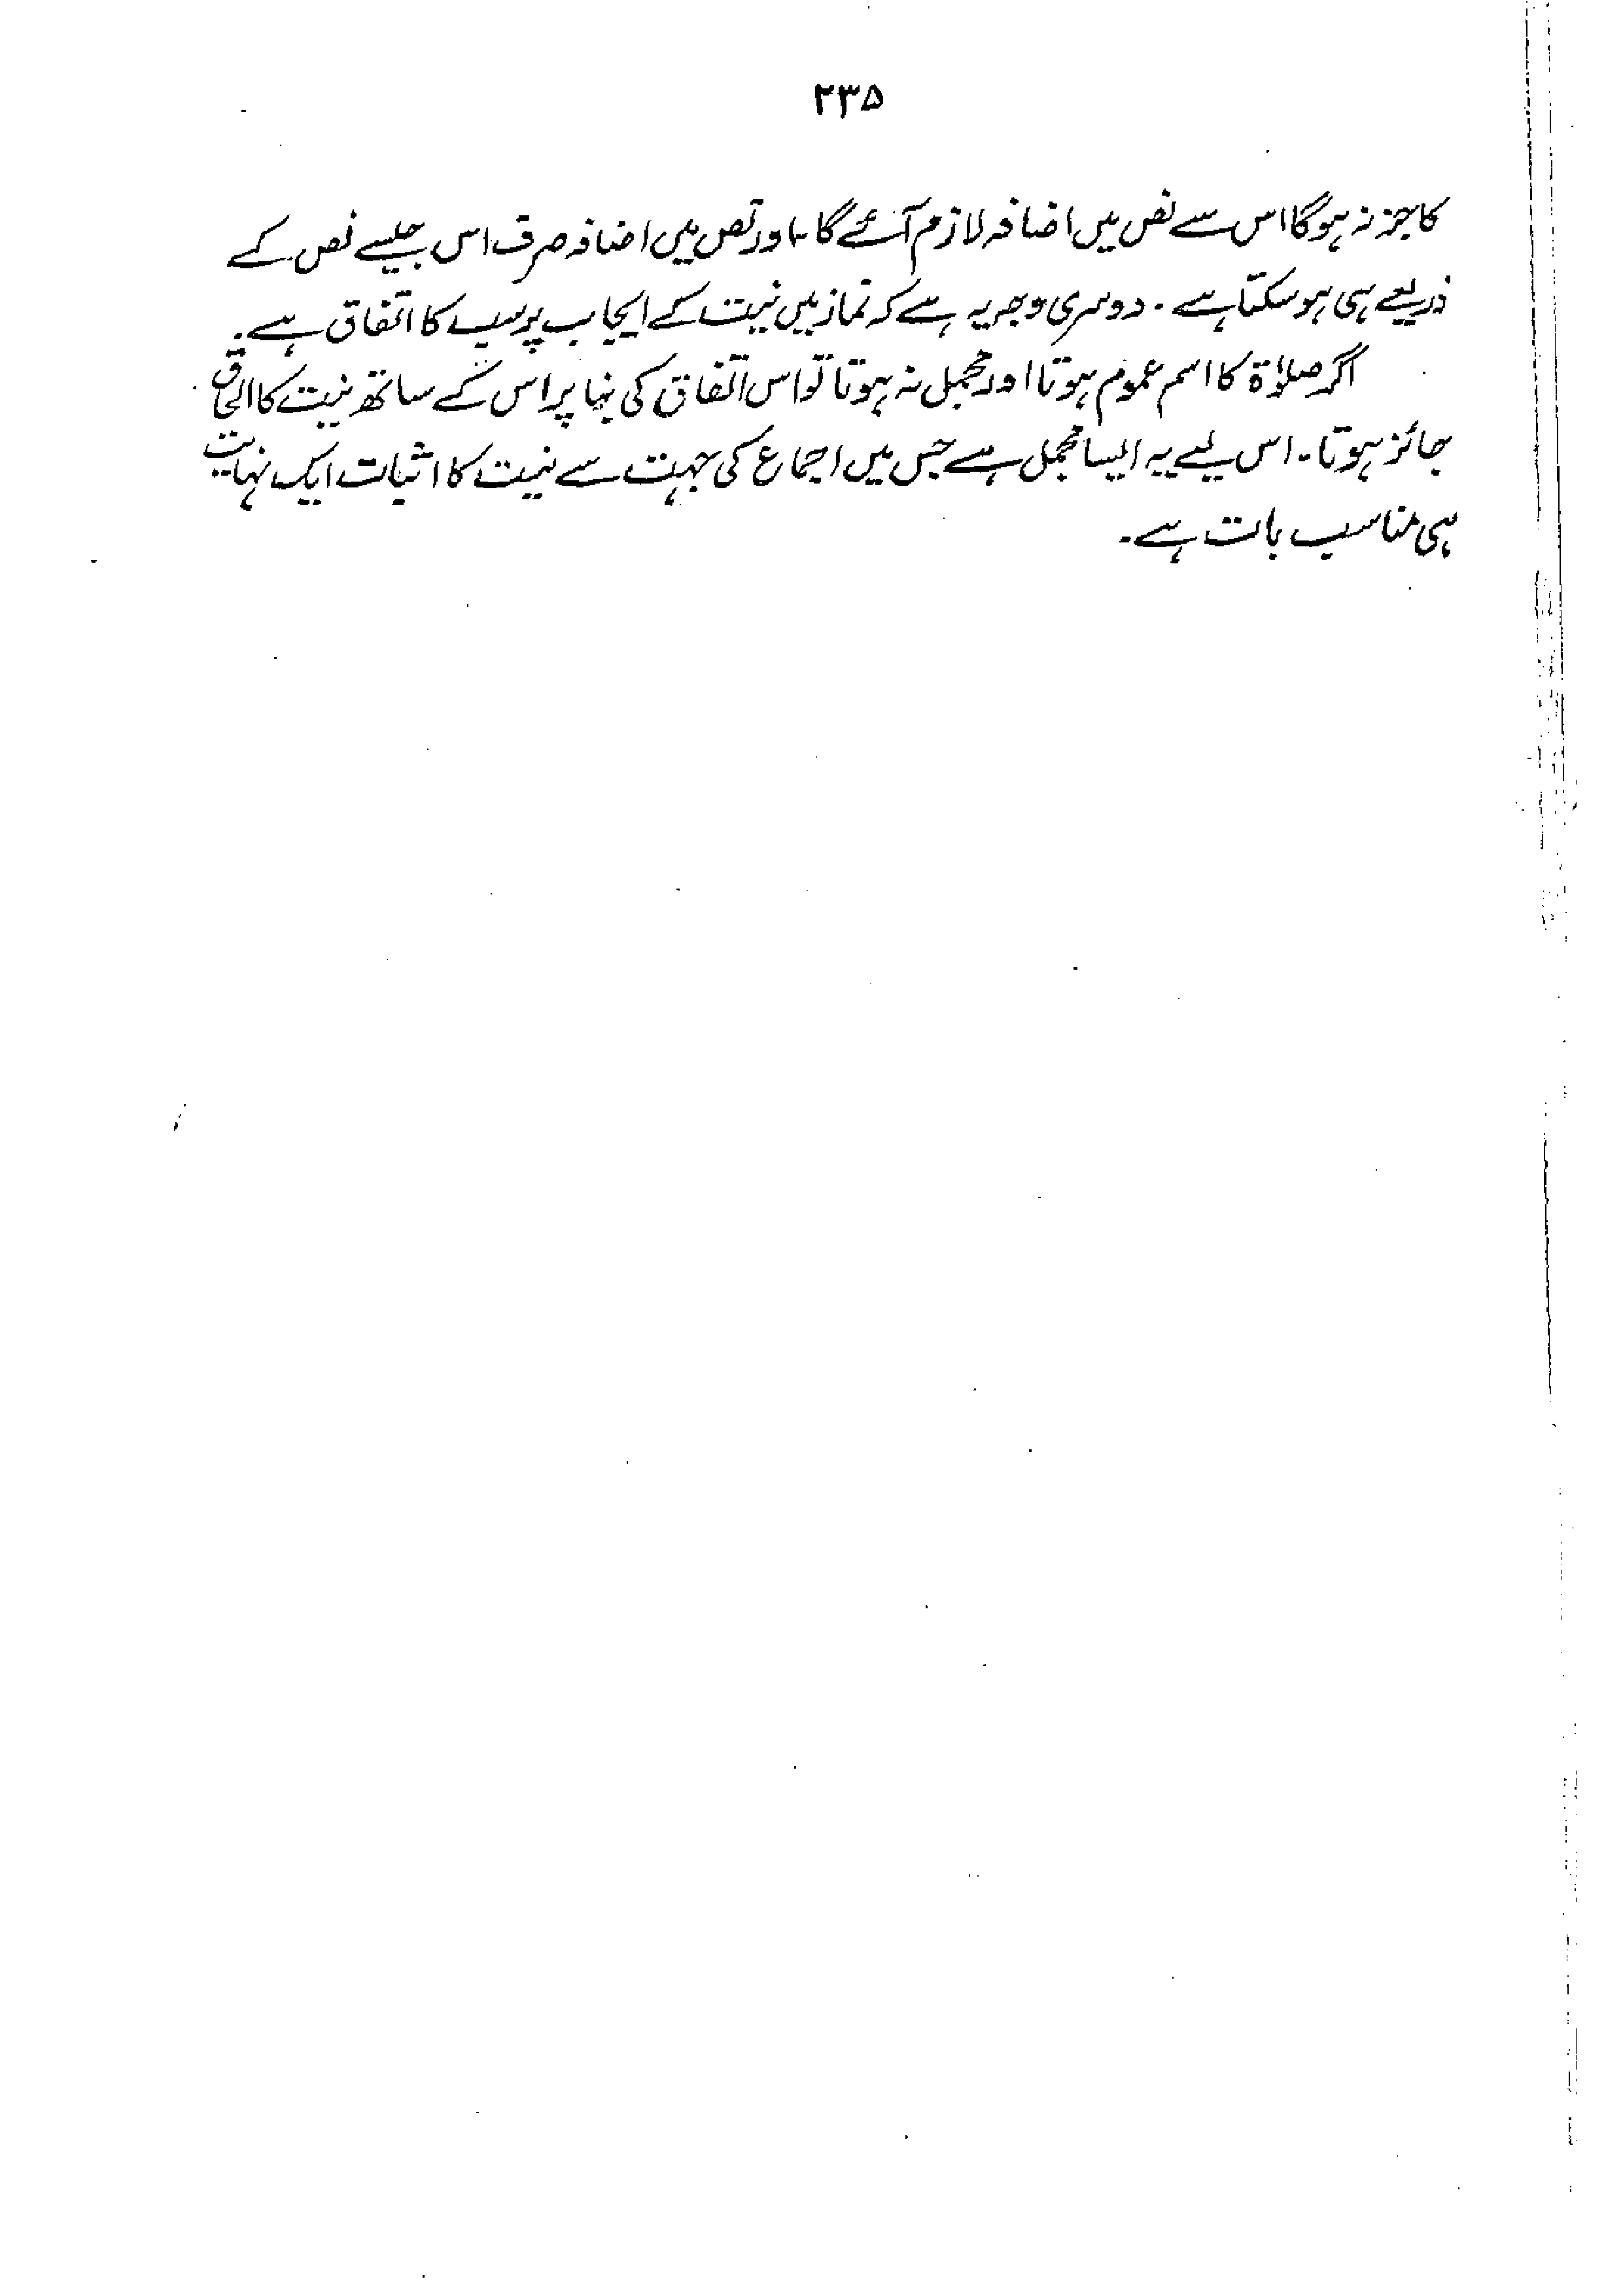 ۲۳۵
کا جز نہ ہوگا اس سے نص میں اضافہ لازم آئے گا، اور نص میں اضافہ صرف اس جیسے نص کے
ذریعے ہی ہو سکتا ہے۔ دوسری وجہ یہ ہے کہ نماز میں نیت کے ایجاب پر سب کا اتفاق ہے۔
اگر صلوٰۃ کا اسم عموم ہوتا اور مجمل نہ ہوتا تو اس اتفاق کی بنا پر اس کے ساتھ نیت کا الحاق
جائز ہوتا۔ اس لیے یہ ایسا مجمل ہے جس میں اجماع کی جہت سے نیت کا اثبات ایک نہایت
ہی مناسب بات ہے۔